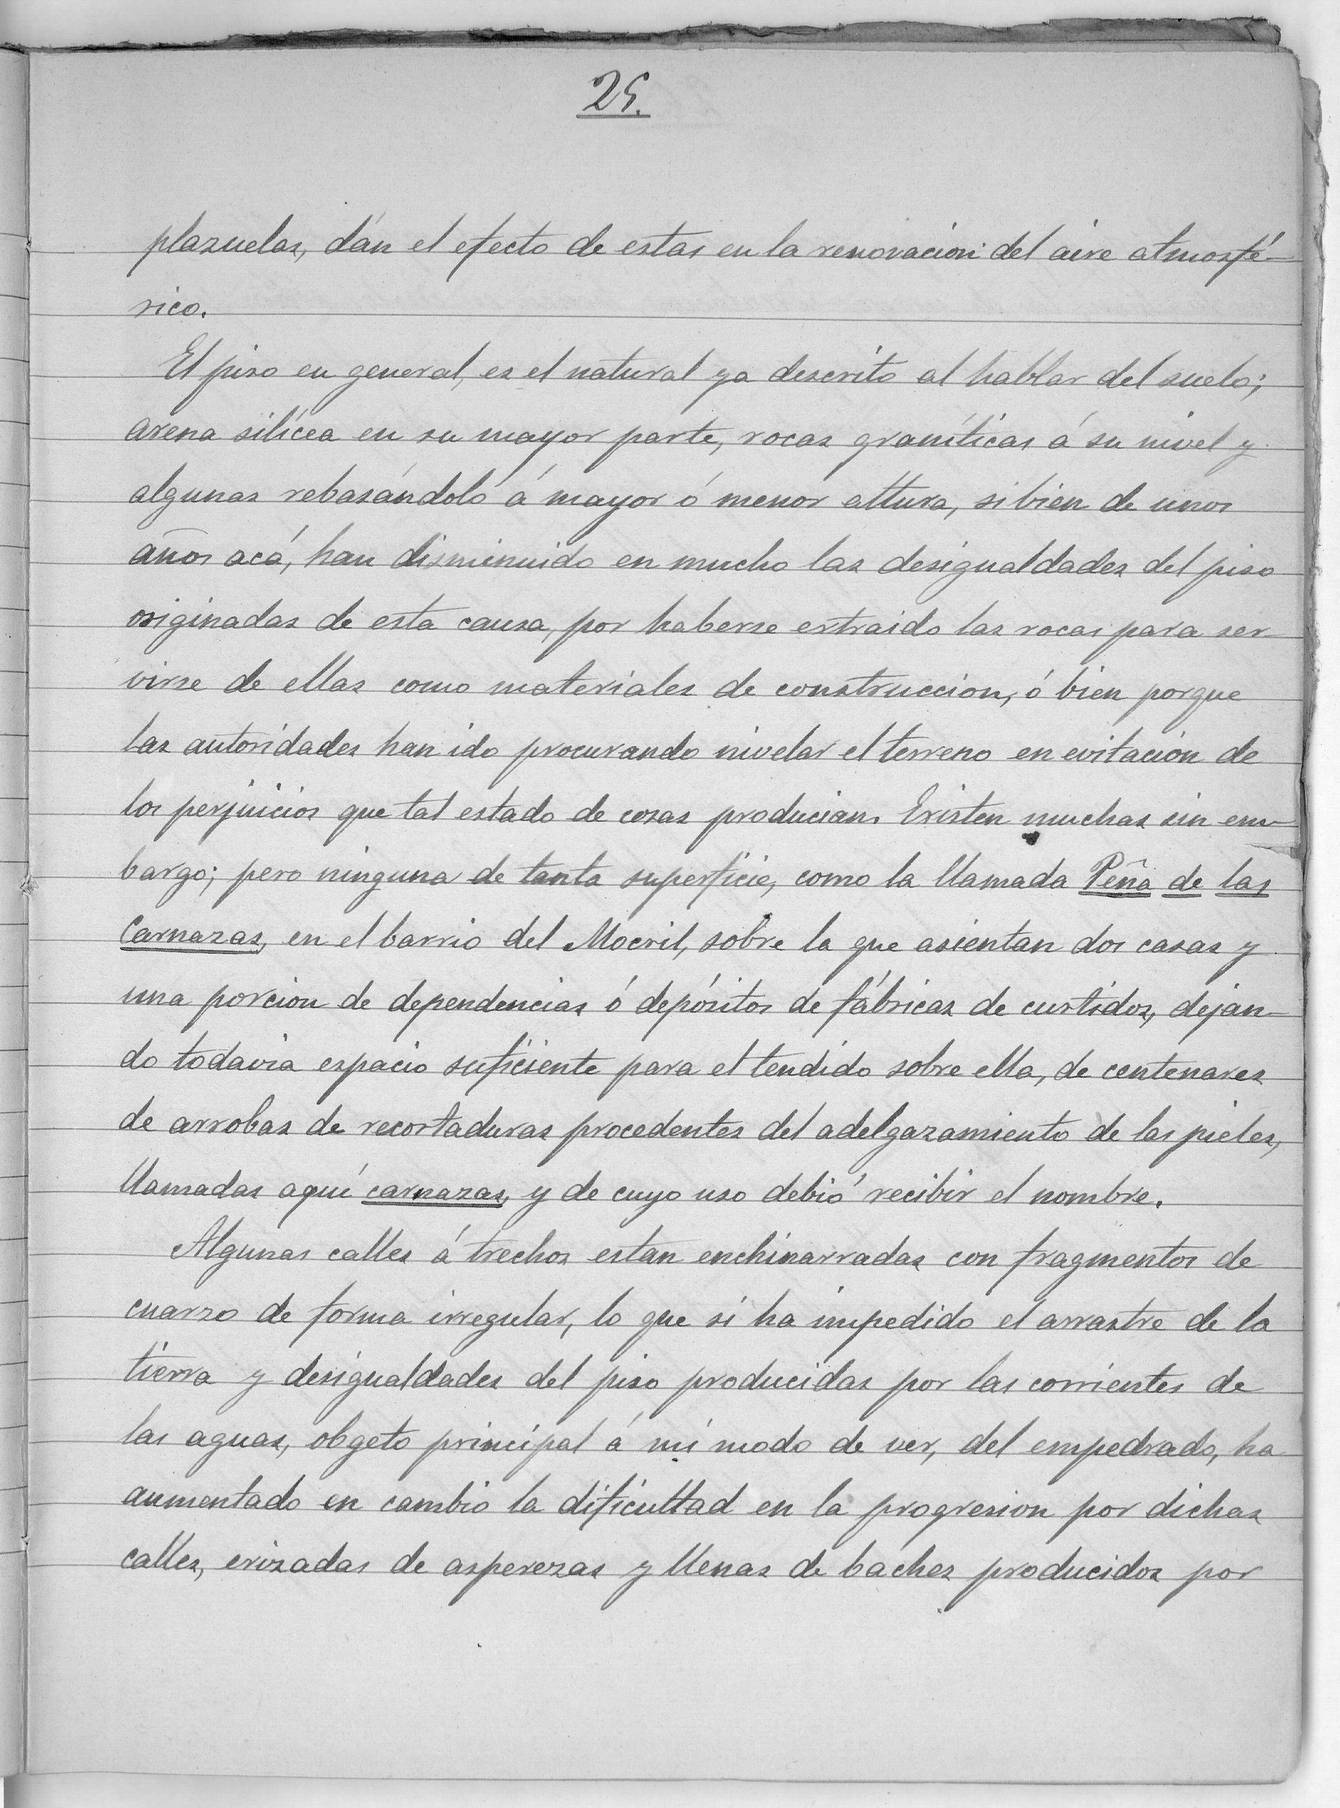 25.
plazuelas, dán el efecto de estas en la renovacion del aire atmosfé-
rico.
El piso en general, es el natural ya descrito al hablar del suelo;
arena silícea en su mayor parte, rocas graníticas á su nivel y
algunas rebasándolo á mayor ó menor altura, si bien de unos
años acá, han disminuido en mucho las desigualdades del piso
originadas de esta causa, por haberse extraido las rocas para ser
virse de ellas como materiales de construccion, ó bien porque
las autoridades han ido procurando nivelar el terreno en evitación de
los perjuicios que tal estado de cosas producian. Existen muchas sin em-
bargo; pero ninguna de tanta superficie, como la llamada Peña de las
Carnazas, en el barrio del Mocril, sobre la que asientan dos casas y
una porcion de dependencias ó depósitos de fábricas de curtidos, dejan-
do todavia espacio suficiente para el tendido sobre ella, de centenares
de arrobas de recortaduras procedentes del adelgazamiento de las pieles,
llamadas aquí carnazas, y de cuyo uso debió recibir el nombre.
Algunas calles á trechos estan enchinarradas con fragmentos de
cuarzo de forma irregular, lo que si ha impedido el arrastre de la
tierra y desigualdades del piso producidas por las corrientes de
las aguas, obgeto principal á mi modo de ver, del empedrado, ha
aumentado en cambio la dificultad en la progresion por dichas
calles, erizadas de asperezas y llenas de baches producidos por